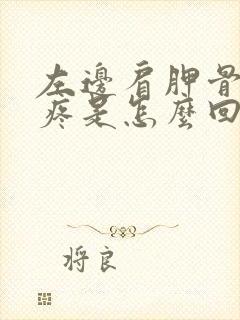 左邊肩胛骨
疼是怎麼回
将良